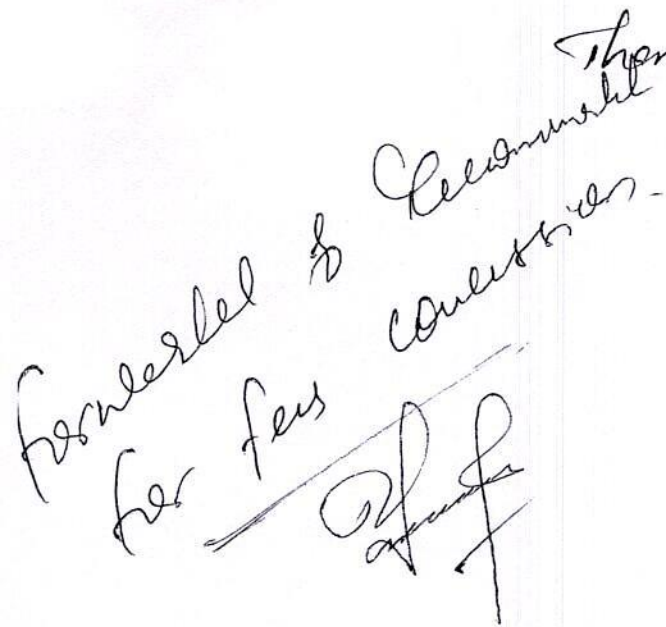 Than
Forwarded & Recommended
for fees concession.